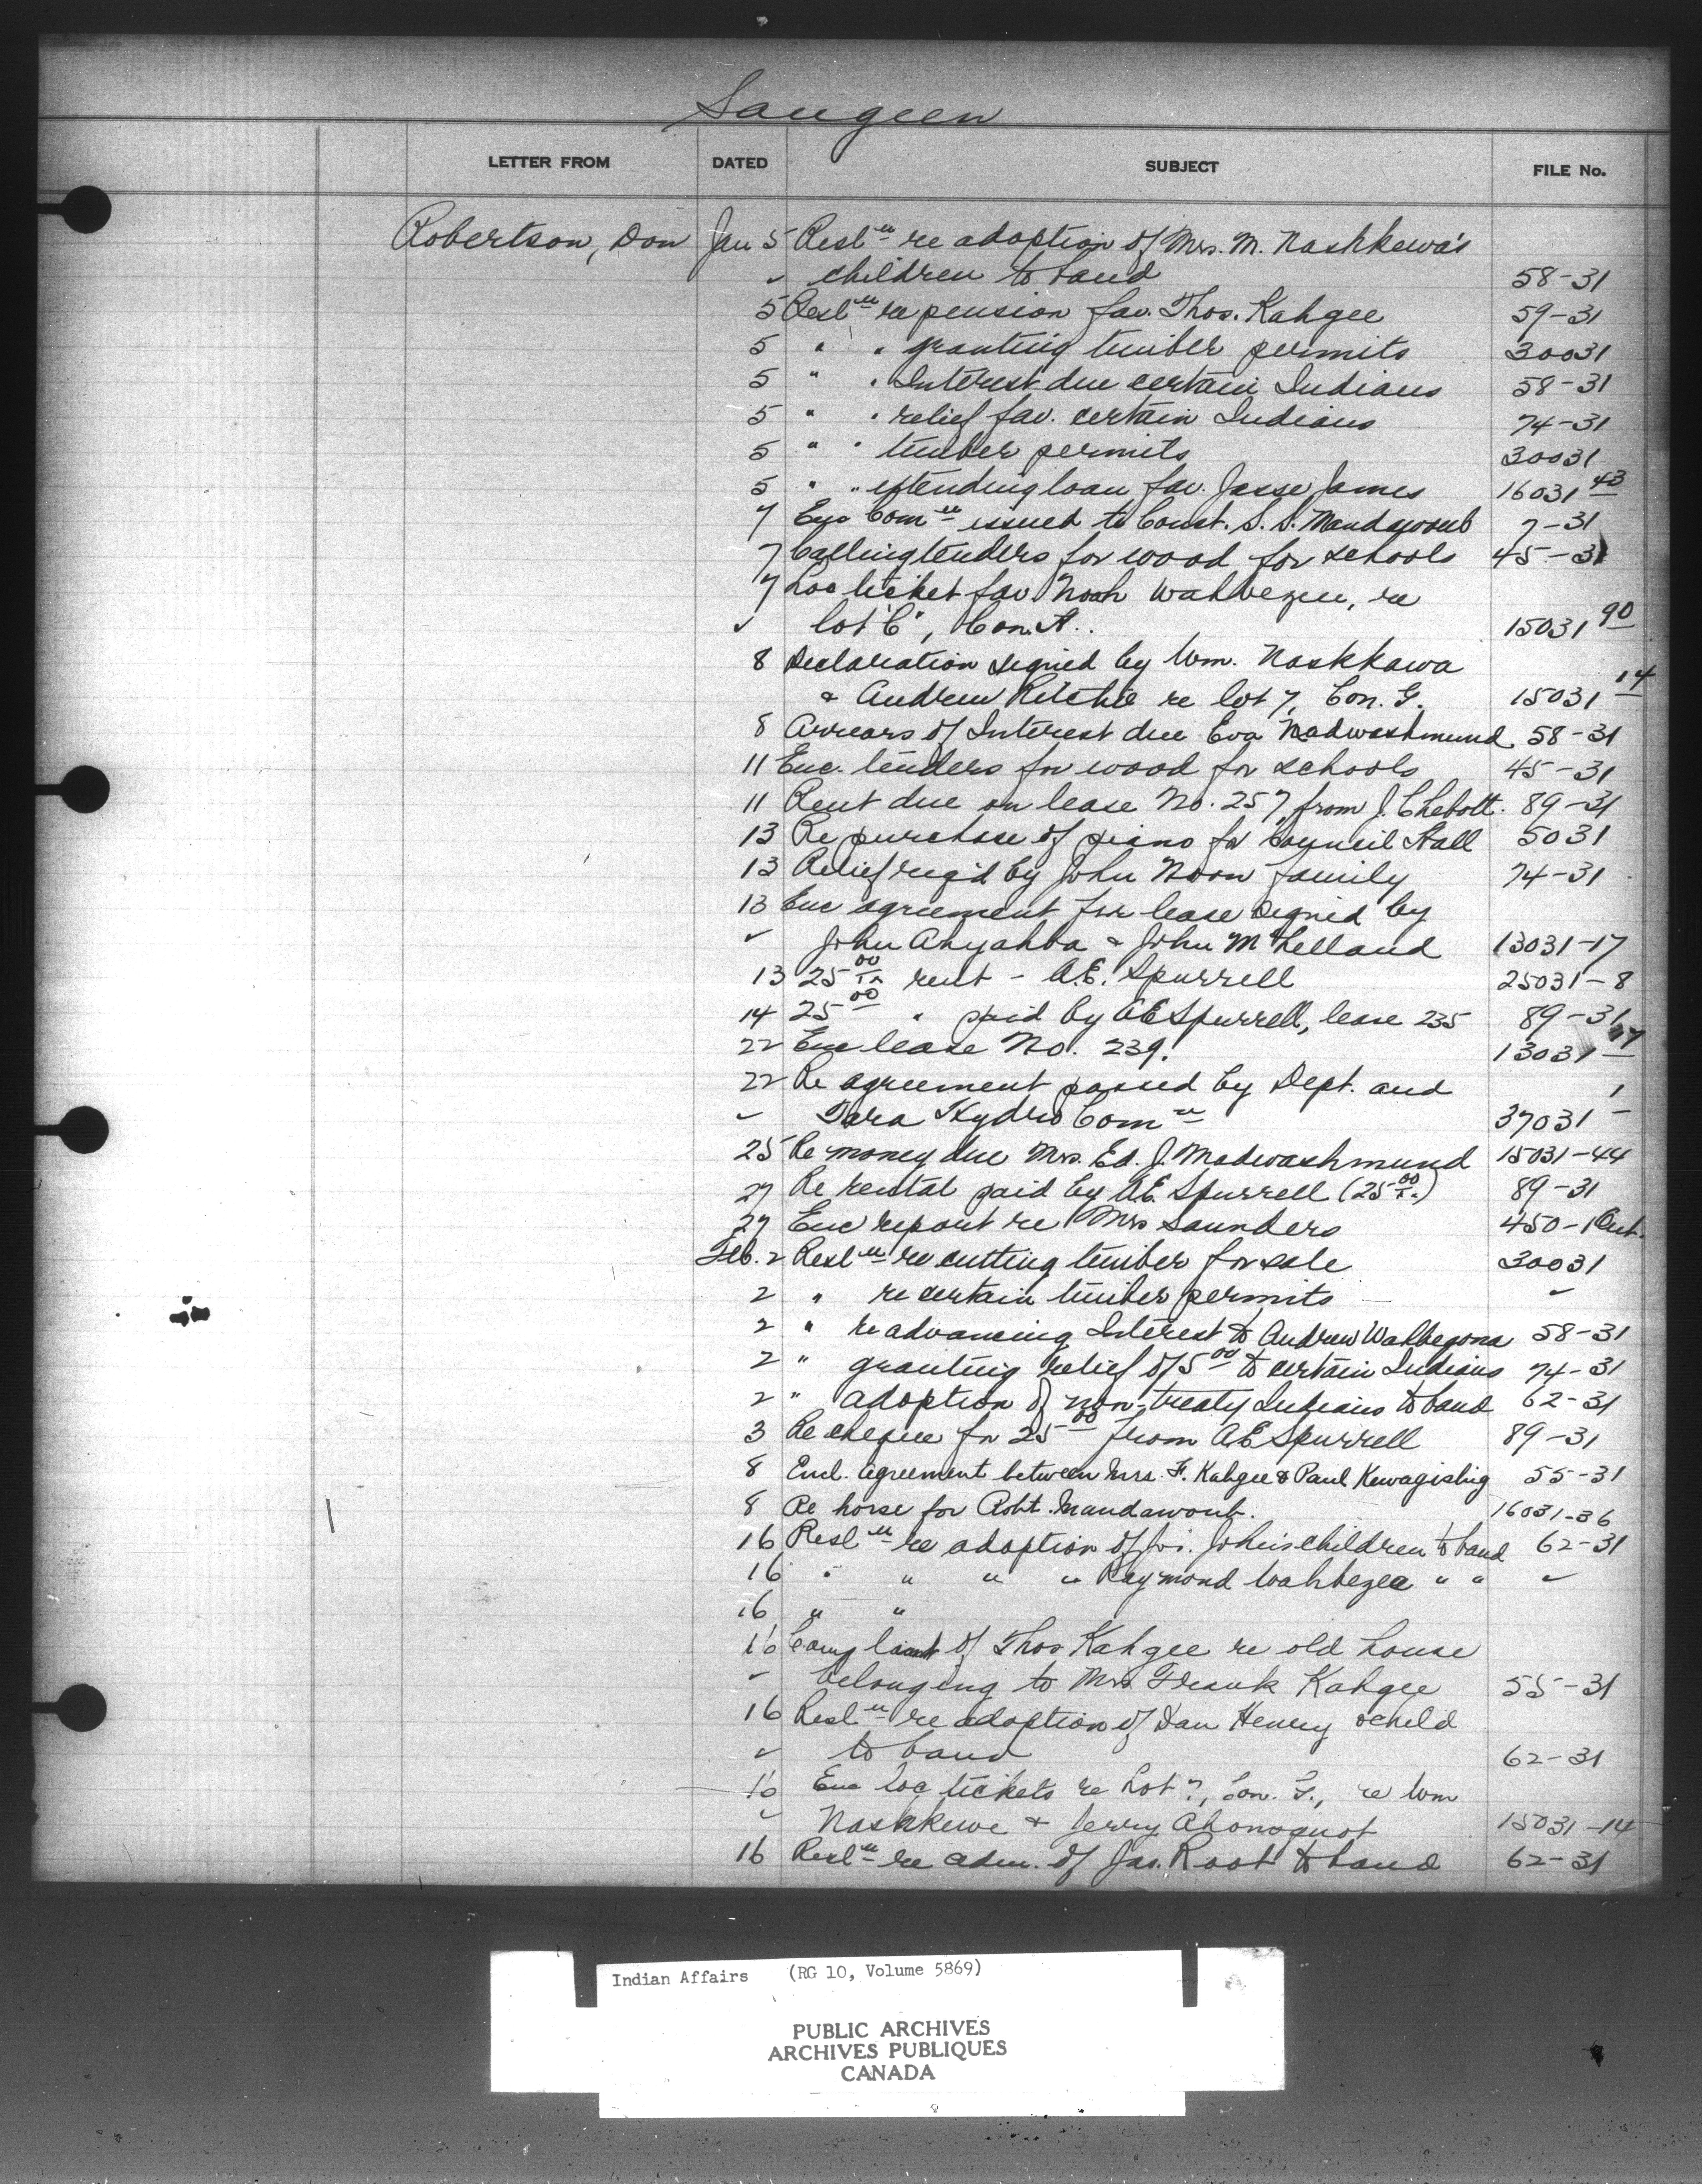 Saugeen
LETTER FROM DATED SUBJECT FILE No.
Robertson, Don Jan 5 Resl'n re adoption of Mrs. M. Nashkewa's
✓ children to band 58-31
5 Resl'n re pension fav. Thos. Kahgee 59-31
5 " " granting timber permits 30031
5 " " Interest due certain Indians 58-31
5 " " relief fav. certain Indians 74-31
5 " " timber permits 30031
5 " " extending loan fav. Jesse James 16031 43
7 Enc Com'n issued to Const. S. S. Mandawoub 7-31
7 Calling tenders for wood for schools 45-31
7 Loc ticket fav. Noah Wahbezee, re
✓ lot "C", Con. A. 15031 90
8 Declaration signed by Wm. Nashkawa
& Andrew Ritchie re lot 7, Con. G. 15031 14
8 Arrears of Interest due Eva Nadwashmund 58-31
11 Enc. tenders for wood for schools 45-31
11 Rent due on lease No. 257 from J. Chebott. 89-31
13 Re purchase of piano for Council Hall 5031
13 Relief req'd by John Noon family 74-31
13 Enc agreement for lease signed by
✓ John Ahyahba & John McLelland 13031-17
13 25 00 rent - A.E. Spurrell 25031-8
14 25 00 " paid by A E Spurrell, lease 235 89-31
22 Enc lease No. 239. 13031 17
22 Re agreement passed by Dept. and
✓ Tara Hydro Com'n 37031 1
25 Re money due Mrs. Ed. J. Madwashmund 15031-44
27 Re rental paid by A.E. Spurrell (25 00) 89-31
27 Enc report re Mrs Saunders 450-1 Ont.
Feb. 2 Resl'n re cutting timber for sale 30031
2 " re certain timber permits ✓
2 " re advancing Interest to Andrew Wahbegona 58-31
2 " granting relief of 5 00 to certain Indians 74-31
2 " adoption of non-treaty Indians to band 62-31
3 Re cheque for 25 00 from A E Spurrell 89-31
8 Encl. agreement between Mrs. F. Kahgee & Paul Kewagishig 55-31
8 Re horse for Robt. Mandawoub. 16031-36
16 Resl'n re adoption of Jos. John's children to band 62-31
16 " " " " Raymond Wahbezee " " ✓
16 " "
16 Complaint of Thos Kahgee re old house
✓ belonging to Mrs Frank Kahgee 55-31
16 Resl'n re adoption of Dan Henry & child
✓ to band 62-31
16 Enc loc tickets re Lot 7, Con. G., re Wm
✓ Nashkewe & Jerry Ahonoquot 15031-14
16 Resl'n re adm. of Jas. Root to band 62-31
Indian Affairs (RG 10, Volume 5869)
PUBLIC ARCHIVES
ARCHIVES PUBLIQUES
CANADA